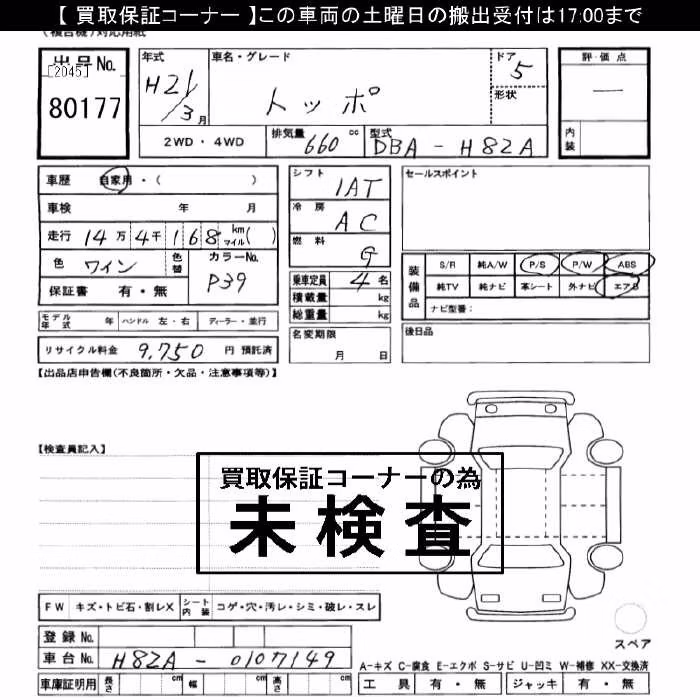 【 買取保証コーナー 】この車両の土曜日の搬出受付は17:00まで
(複合機)対応用紙
出品No. [2045] 80177
年式 H21/3月
車名・グレード トッポ
ドア 5
形状
2WD・4WD
排気量 660 cc
型式 DBA-H82A
評価点 —
内装
車歴 自家用・( )
車検 年 月
走行 14万4千168 km マイル( )
色 ワイン 色替 カラーNo. P39
保証書 有・無
シフト IAT
冷房 AC
燃料 G
乗車定員 4名
積載量 kg
総重量 kg
セールスポイント
装備品 S/R 純A/W P/S P/W ABS
純TV 純ナビ 革シート 外ナビ エアB
ナビ型番:
モデル年式 年 ハンドル 左・右 ディーラー・並行
名変期限 月 日
後日品
リサイクル料金 9,750 円 預託済
【出品店申告欄(不良箇所・欠品・注意事項等)】
【検査員記入】
買取保証コーナーの為
未検査
FW キズ・トビ石・割レX シート内装 コゲ・穴・汚レ・シミ・破レ・スレ
スペア
登録No.
車台No. H82A-0107149
A-キズ C-腐食 E-エクボ S-サビ U-凹ミ W-補修 XX-交換済
車庫証明用 長さ cm 幅 cm 高さ cm
工具 有・無 ジャッキ 有・無